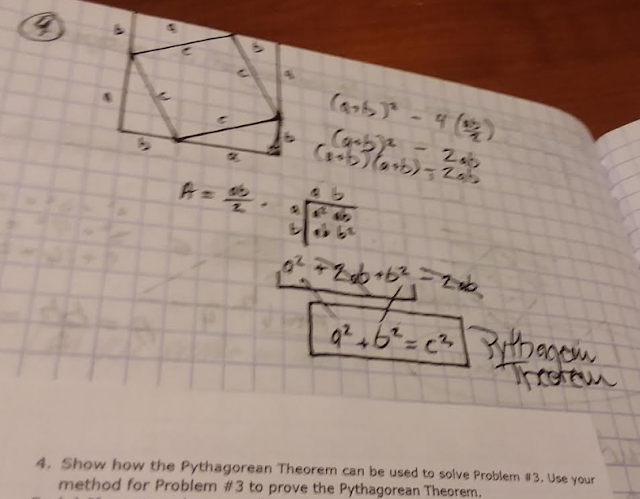 4
b a
c b
c a
a c c
b a b
(a+b)² - 4(ab/2)
(a+b)² - 2ab
(a+b)(a+b) - 2ab
A = ab/2 .
a b
a a² ab
b ab b²
a² + 2ab + b² - 2ab
a² + b² = c²
4. Show how the Pythagorean Theorem can be used to solve Problem #3. Use your
method for Problem #3 to prove the Pythagorean Theorem.